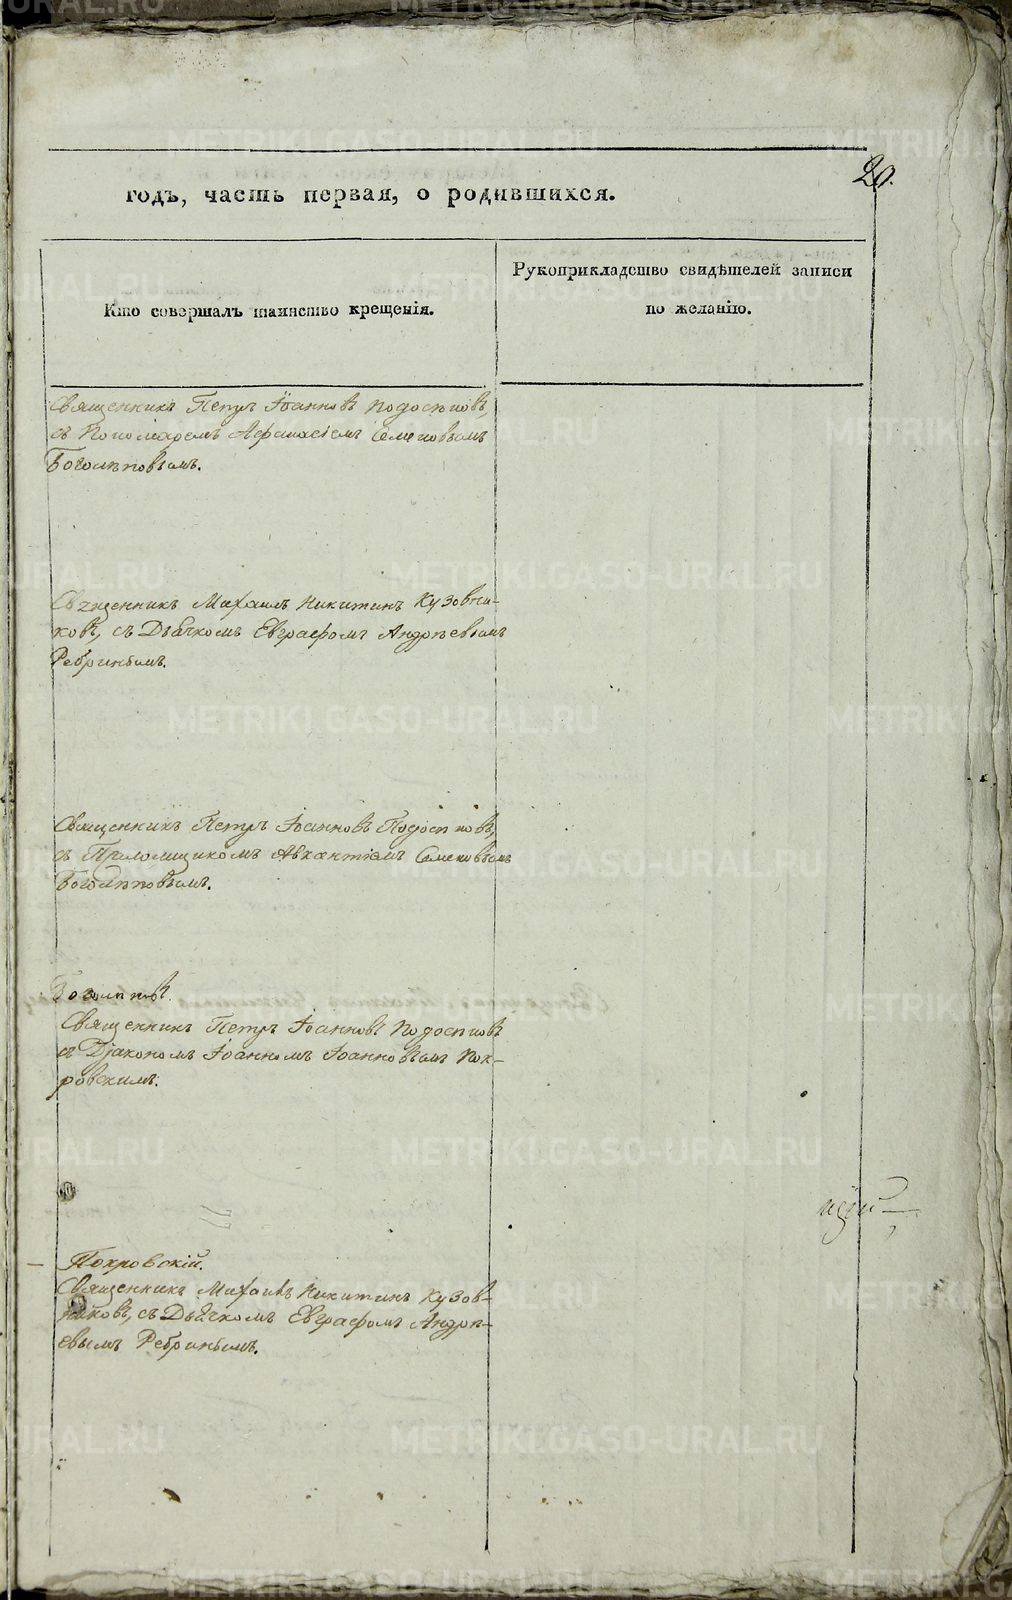 20.
годъ, часть первая, о родившихся.
Кто совершалъ таинство крещенія.
Рукоприкладство свидѣтелей записи
по желанію.
Священникъ Петръ Іоанновъ Подосѣновъ,
съ Пономаремъ Афанасіемъ Семеновымъ
Боголѣповымъ.
Священникъ Михаилъ Никитинъ Кузовни-
ковъ, съ Дьячкомъ Евграфомъ Андреевымъ
Ребринымъ.
Священникъ Петръ Іоанновъ Подосѣновъ,
съ Семеновымъ
Боголѣповымъ.
Боголѣповъ.
Священникъ Петръ Іоанновъ Подосѣновъ
съ Діакономъ Іоанномъ Іоанновымъ Пок-
ровскимъ.
Покровскій.
Священникъ Михаилъ Никитинъ Кузов-
никовъ, съ Дьячкомъ Евграфомъ Андрѣ-
евымъ Ребринымъ.
METRIKI.GASO-URAL.RU